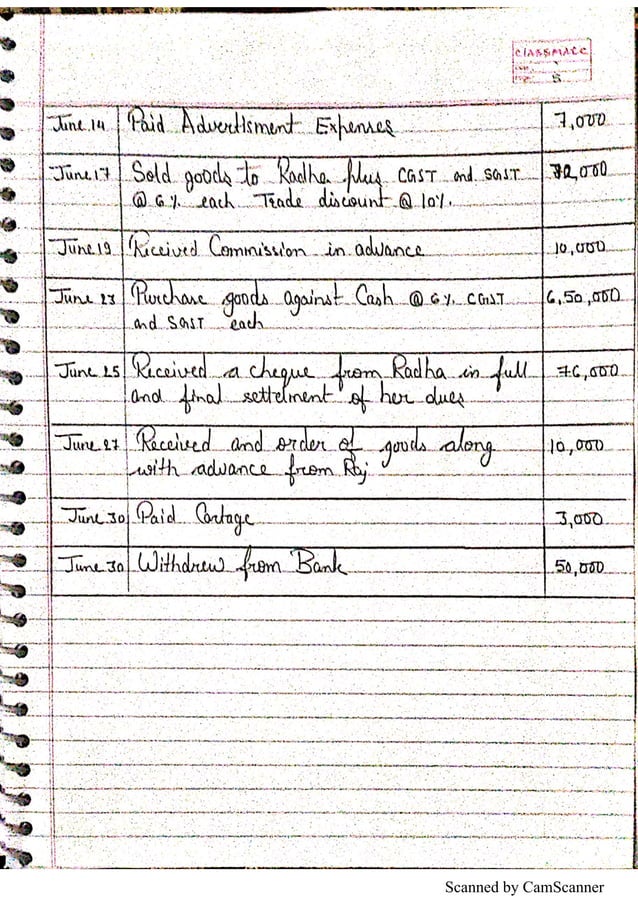 classmate
5
June 14 Paid Advertisment Expenses 7,000
June 17 Sold goods to Radha plus CGST and SGST 72,000
@ 6% each Trade discount @ 10%.
June 19 Received Commission in advance 10,000
June 23 Purchase goods against Cash @ 6% CGST 6,50,000
and SGST each
June 25 Received a cheque from Radha in full 76,000
and final settelment of her dues
June 27 Received and order of goods along 10,000
with advance from Raj
June 30 Paid Cartage 3,000
June 30 Withdrew from Bank 50,000
Scanned by CamScanner